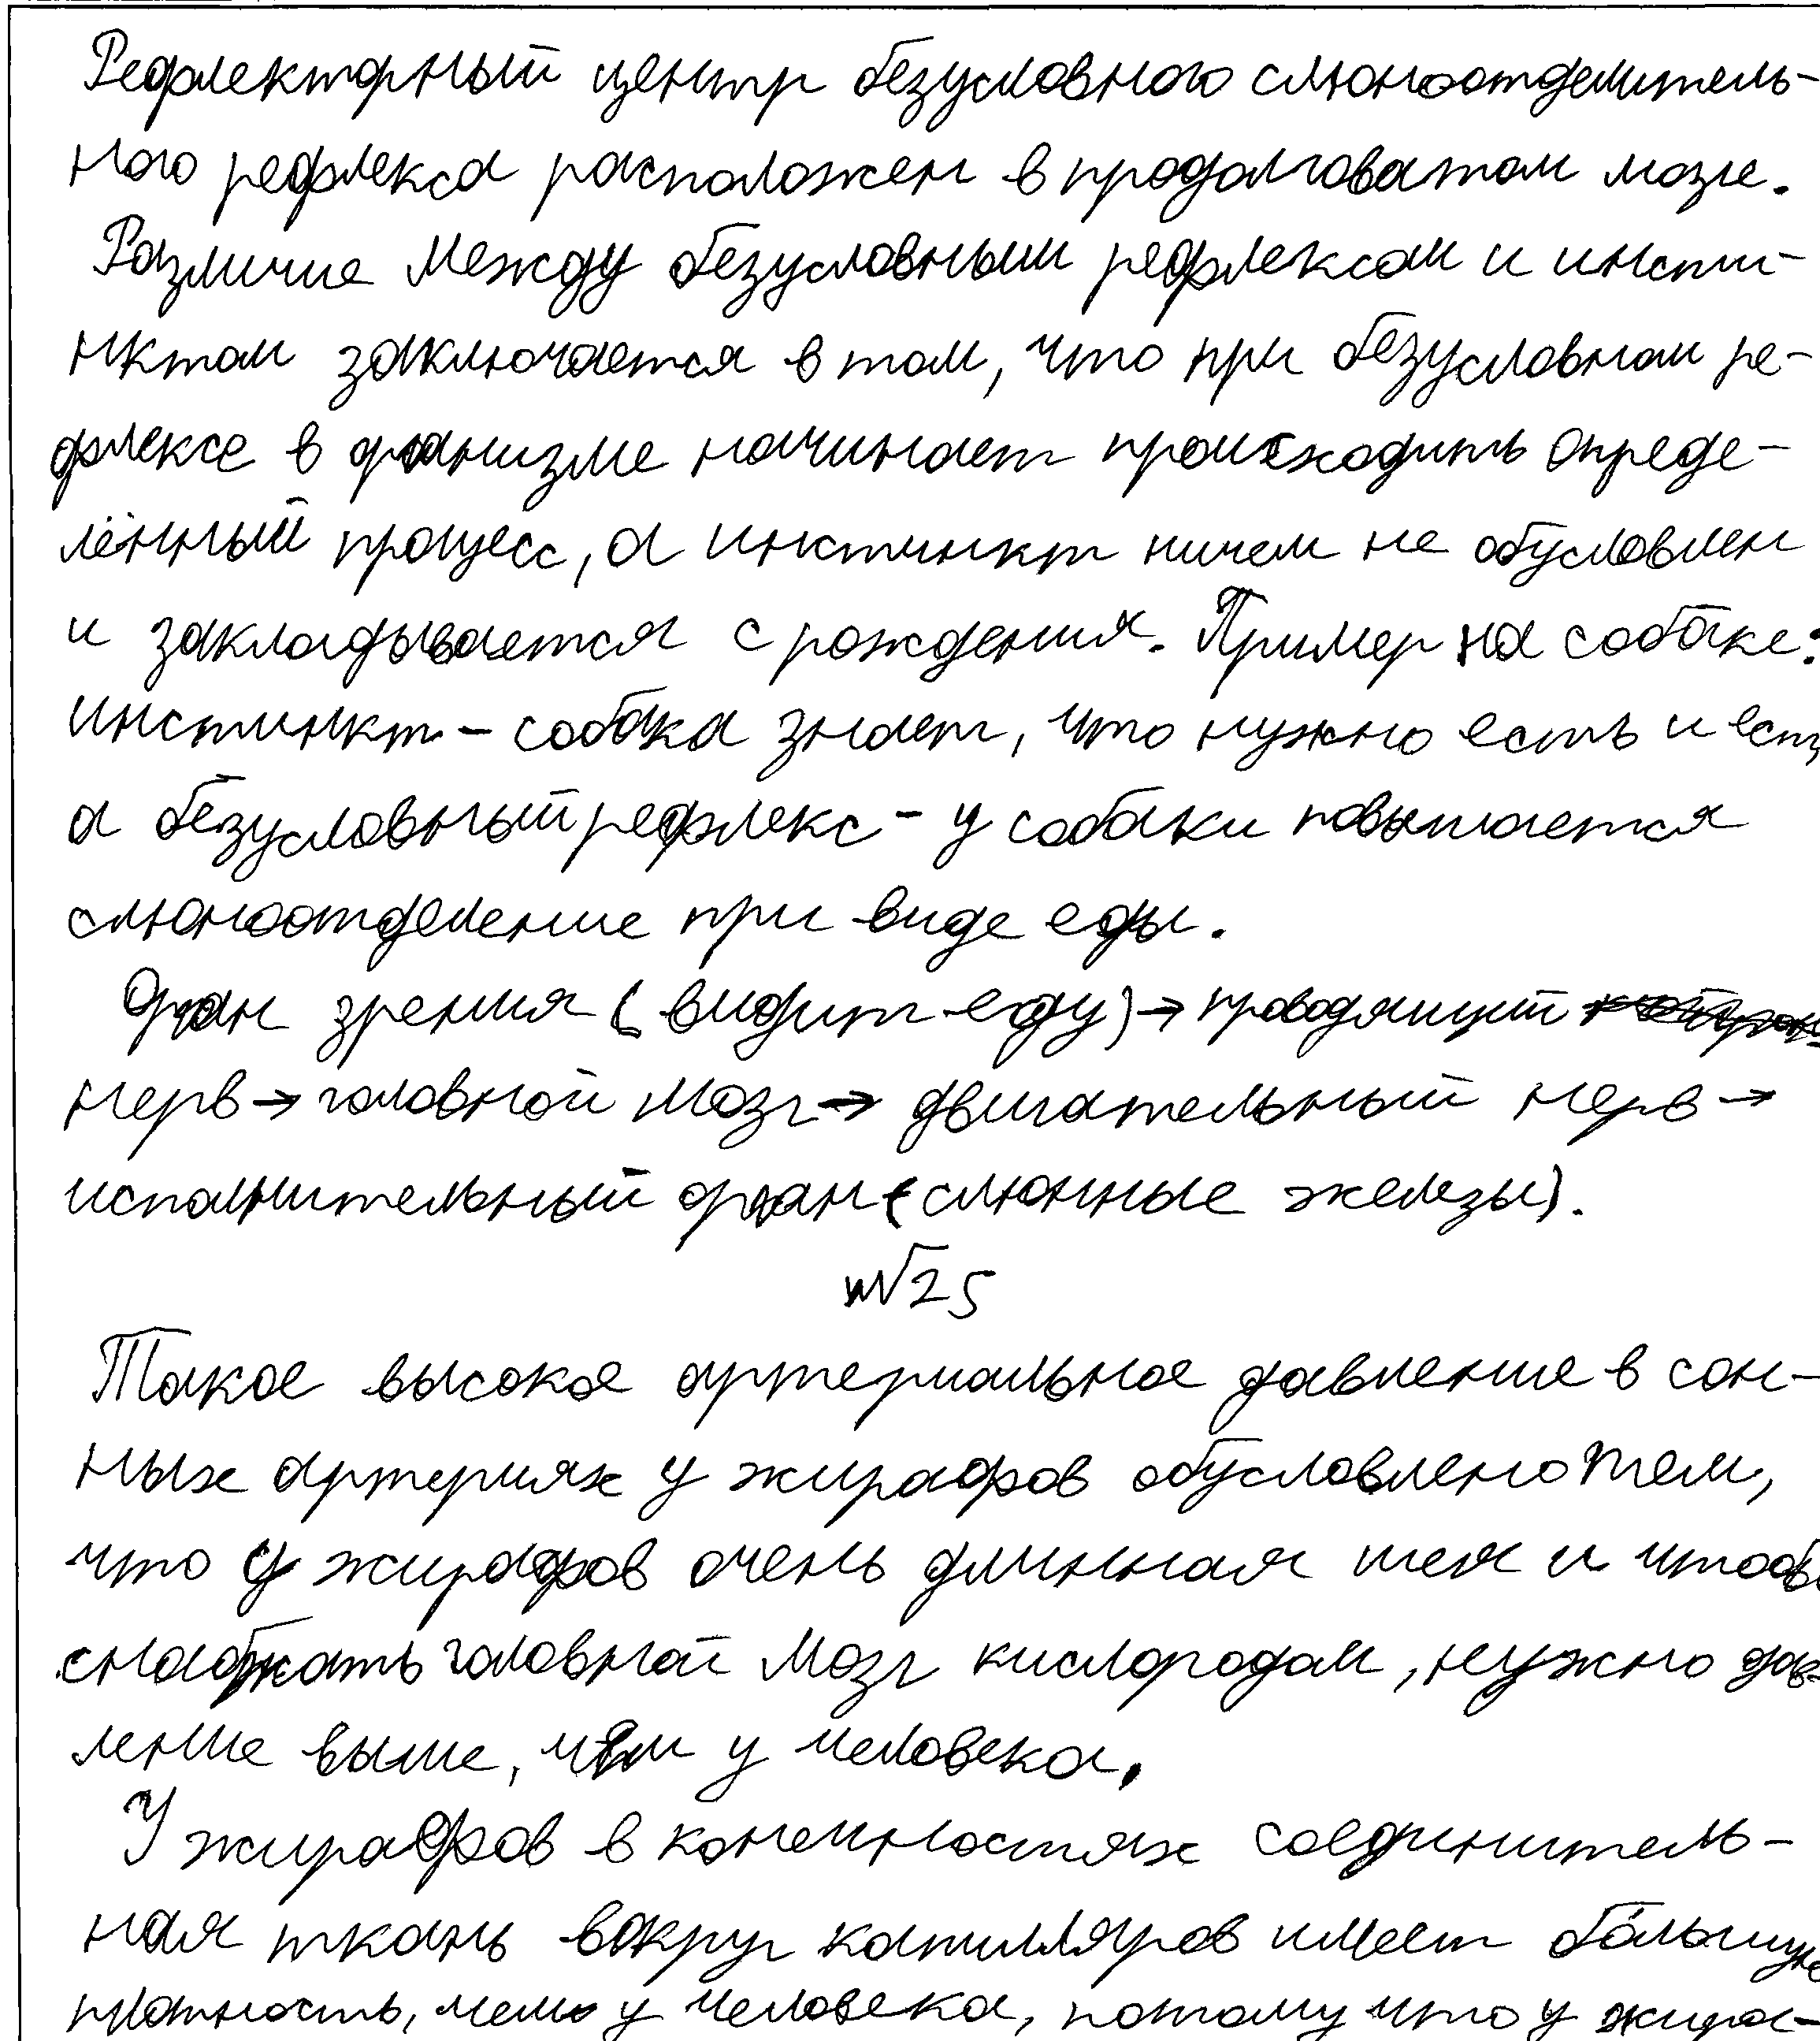 Рефлекторный центр безусловного слюноотделитель-
ного рефлекса расположен в продолговатом мозге.
Различие между безусловным рефлексом и инсти-
нктом заключается в том, что при безусловном ре-
флексе в организме начинает происходить опреде-
лённый процесс, а инктинкт ничем не обусловлен
и закладывается с рождения. Пример на собаке:
инстинкт - собака знает, что нужно есть и ест,
а безусловный рефлекс - у собаки повышается
слюноотделение при виде еды.
Орган зрения (видит еду) → проводящий
нерв → головной мозг → двигательный нерв →
исполнительный орган (слюнные железы).
№25
Такое высокое артериальное давление в сон-
ных артериях у жирафов обусловлено тем,
что у жирафов очень длинная шея и чтобы
снабжать головной мозг кислородом, нужно дав-
ление выше, чем у человека.
У жирафов в конечностях соединитель-
ная ткань вокруг капилляров имеет бо́льшую
плотность, чем у человека, потому что у жира-